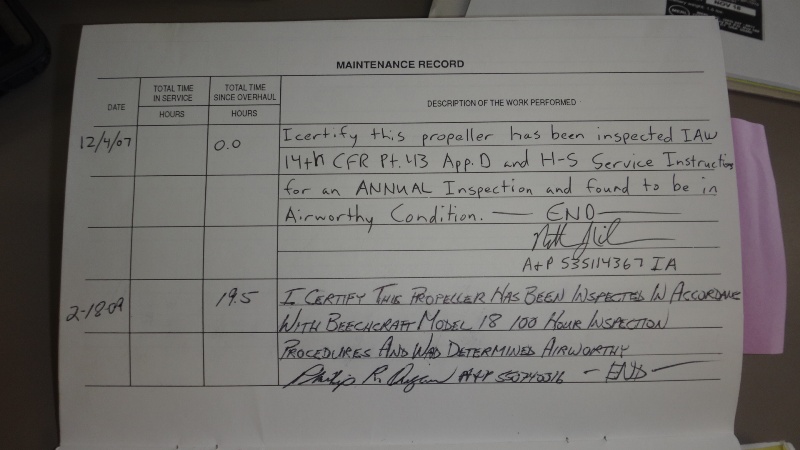 MAINTENANCE RECORD
DATE
TOTAL TIME IN SERVICE
HOURS
TOTAL TIME SINCE OVERHAUL
HOURS
DESCRIPTION OF THE WORK PERFORMED
12/4/07 0.0 I certify this propeller has been inspected IAW
14th CFR Pt. 43 App. D and H-S Service Instructions
for an ANNUAL Inspection and found to be in
Airworthy Condition. — END —
A+P 535114367 IA
2-18-09 19.5 I CERTIFY THIS PROPELLER HAS BEEN INSPECTED IN ACCORDANCE
WITH BEECHCRAFT MODEL 18 100 HOUR INSPECTION
PROCEDURES AND WAS DETERMINED AIRWORTHY
Philip R. A+P 550740316 — END —